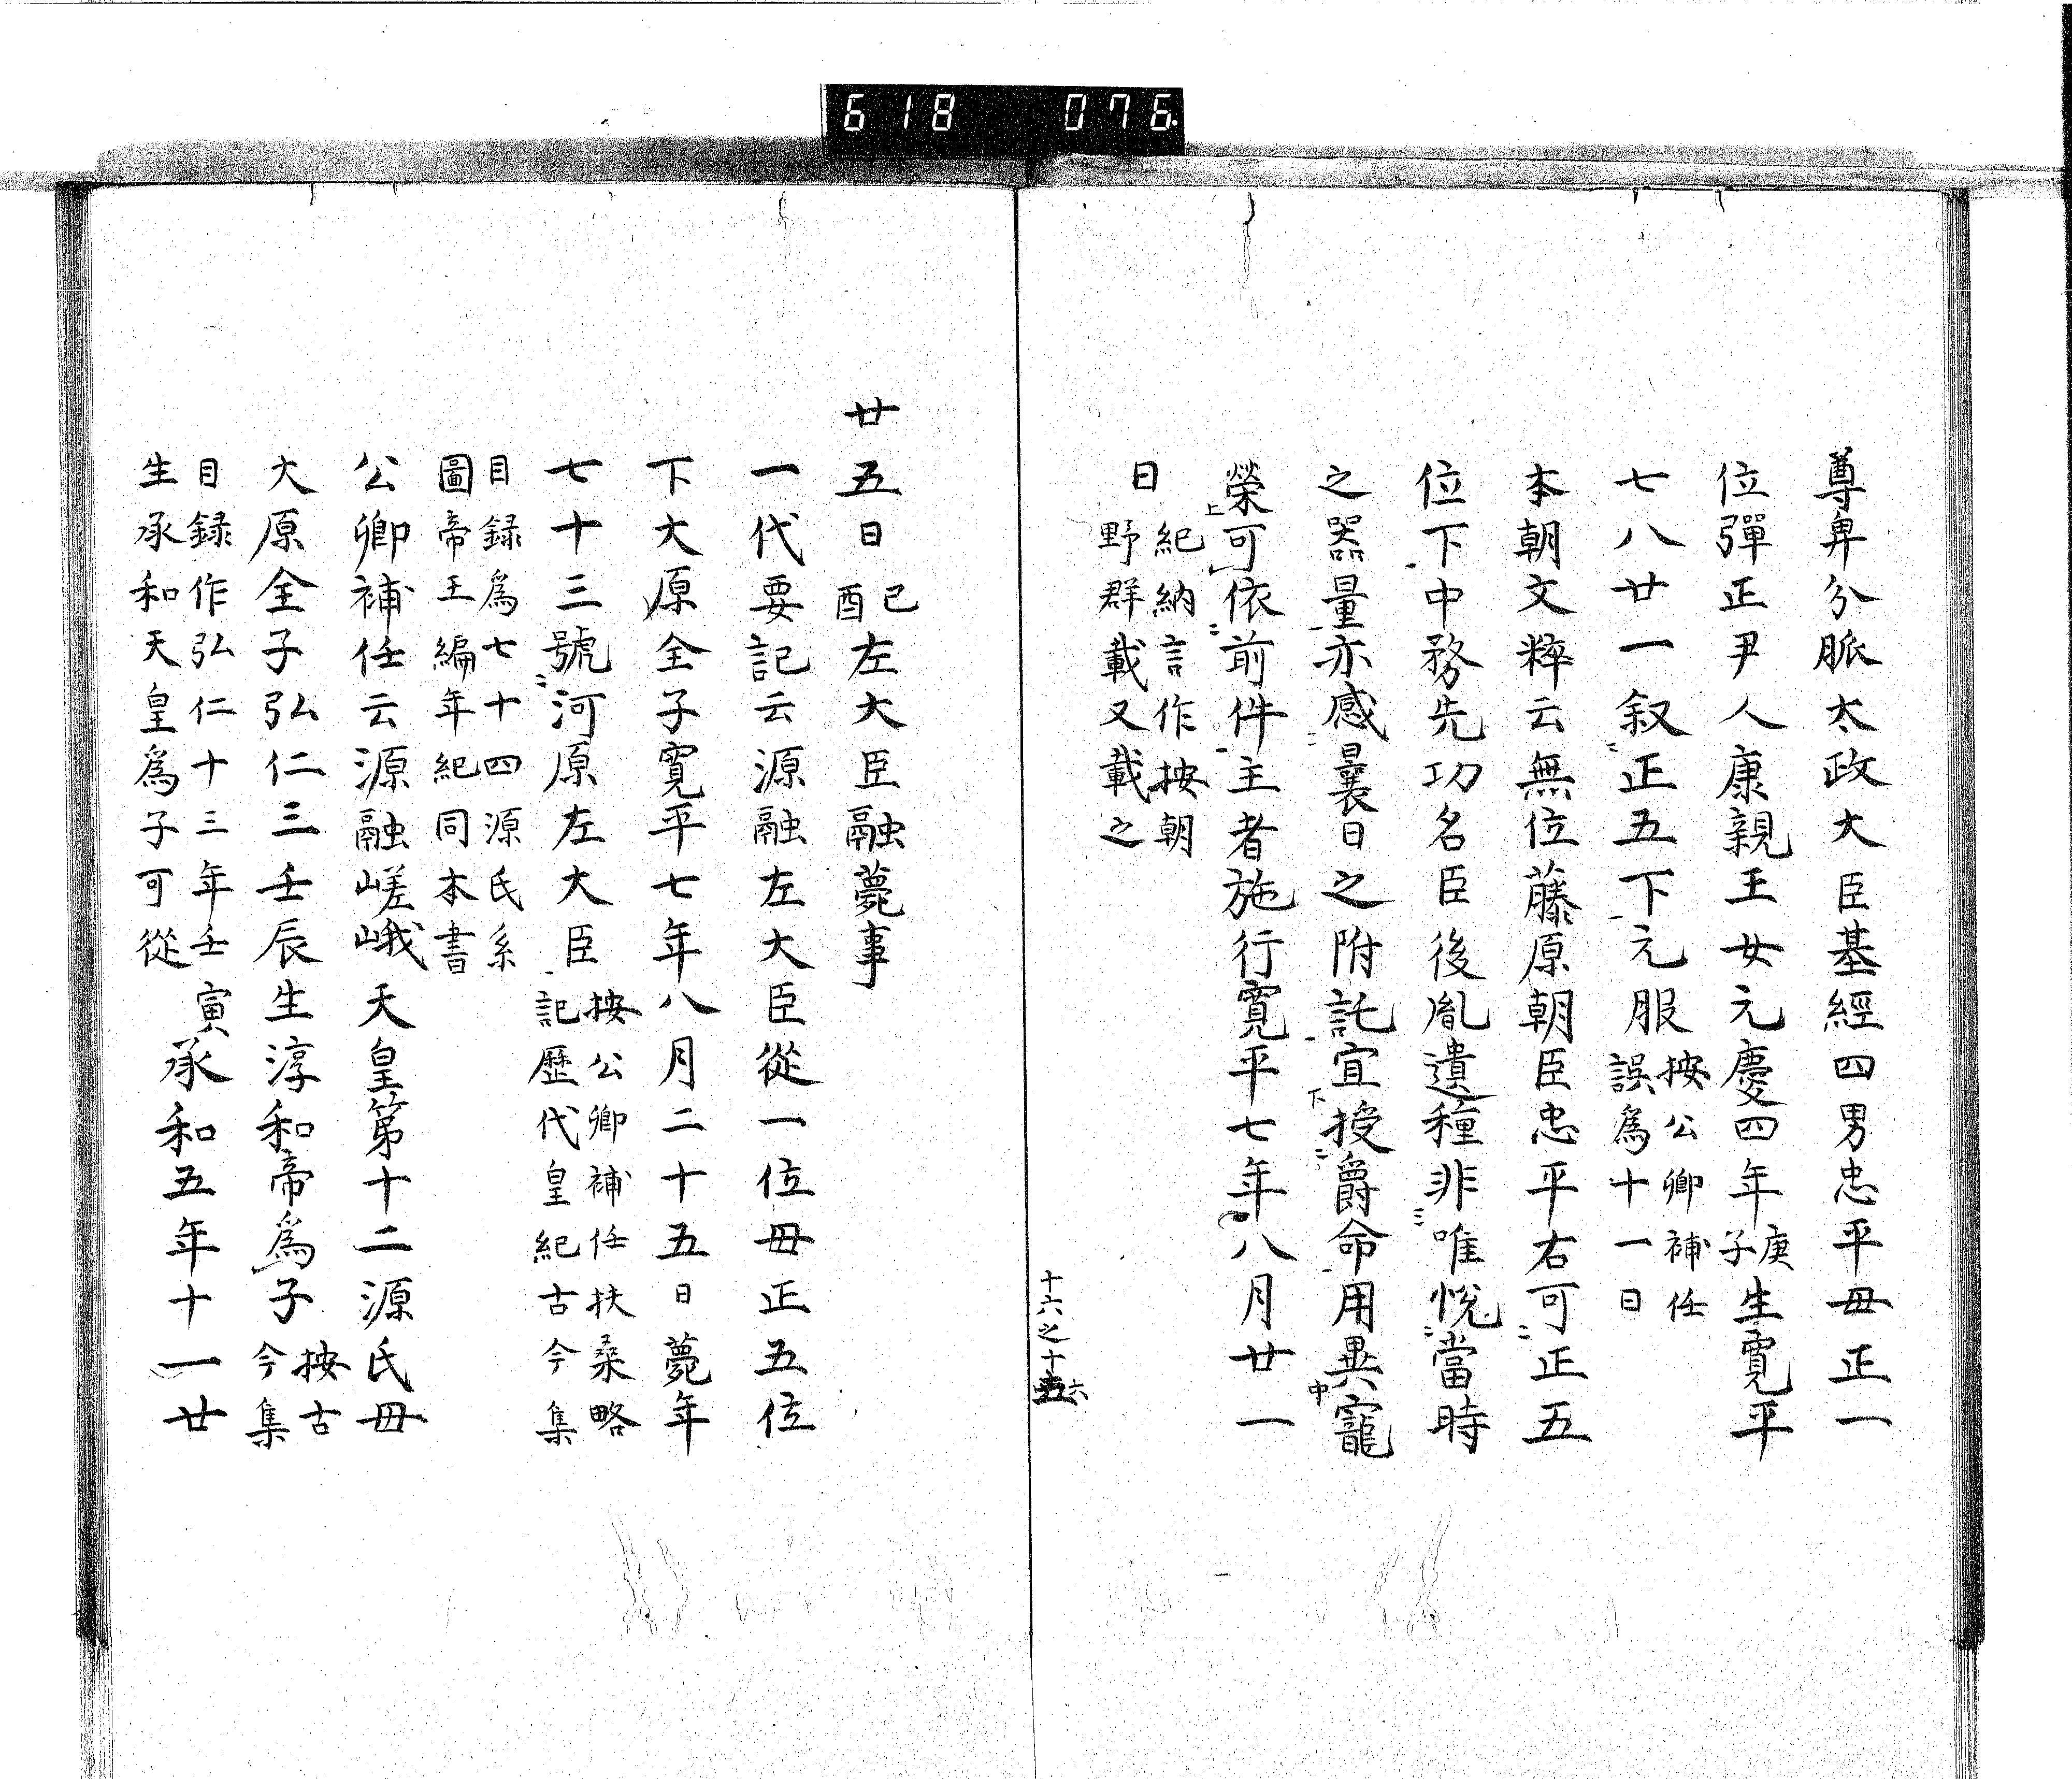 618 076
尊卑分脈太政大臣基經四男忠平毋正一
位彈正尹人康親王女元慶四年庚子生寛平
七八廿一叙正五下元服按公卿補任
誤爲十一日
本朝文粹云無位藤原朝臣忠平右可正五
位下中務先功名臣後胤遺種非唯悅當時
之器量亦感曩日之附託宜授爵命用異寵
榮可依前件主者施行寛平七年八月廿一
日紀納言作按朝
野群載又載之
十六之十六
廿五日己酉左大臣融薨事
一代要記云源融左大臣從一位毋正五位
下大原全子寛平七年八月二十五日薨年
七十三號河原左大臣按公卿補任扶桑略
記歷代皇紀古今集
目録爲七十四源氏系
圖帝王編年紀同本書
公卿補任云源融嵯峨天皇第十二源氏毋
大原全子弘仁三壬辰生淳和帝爲子按古
今集
目録作弘仁十三年壬寅
生承和天皇爲子可從
承和五年十一廿